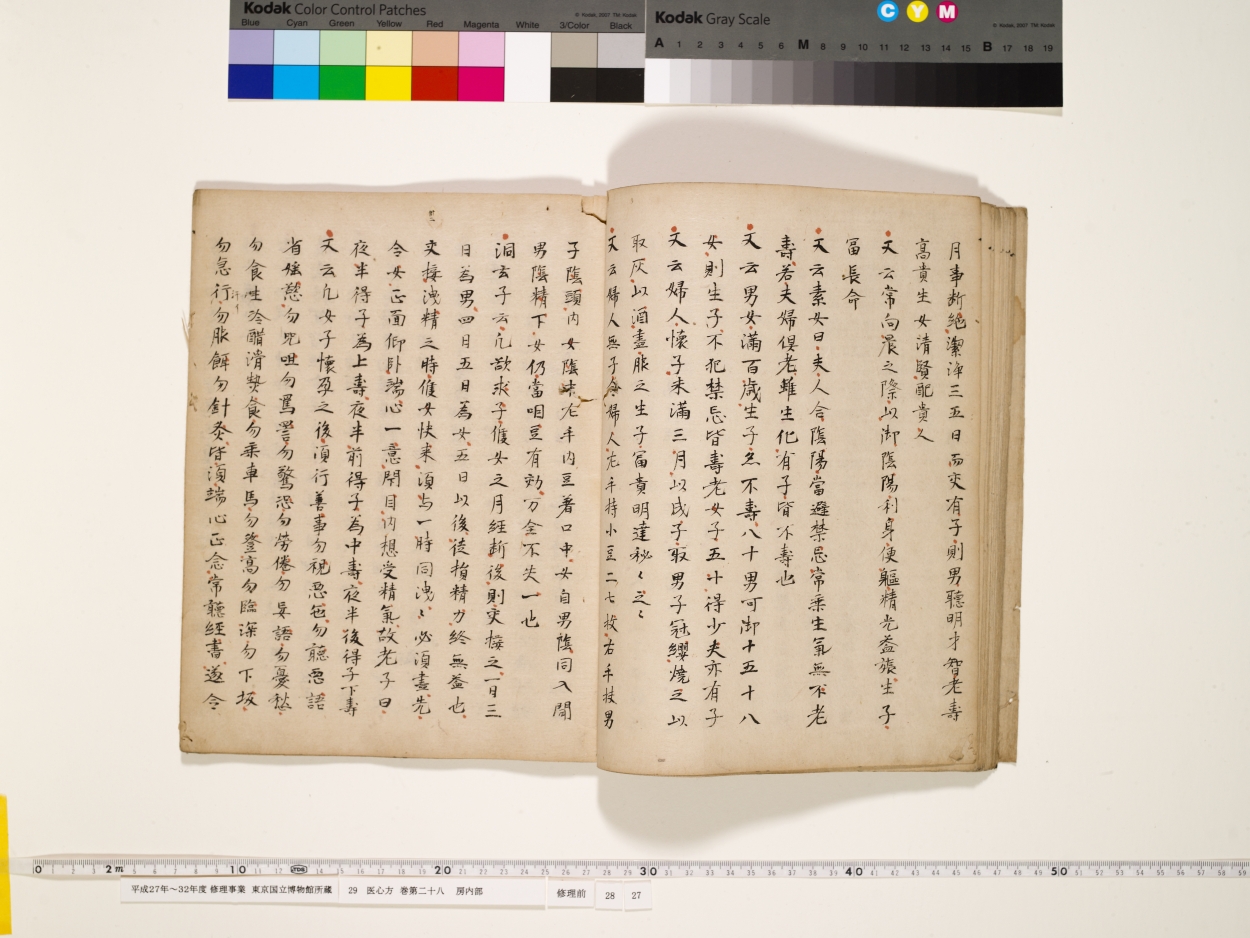 Kodak Color Control Patches
© Kodak, 2007 TM: Kodak
Blue Cyan Green Yellow Red Magenta White 3/Color Black
Kodak Gray Scale
C Y M
© Kodak, 2007 TM: Kodak
A 1 2 3 4 5 6 M 8 9 10 11 12 13 14 15 B 17 18 19
月事断絶潔浄三五日而交有子則男聰明才智老壽
高貴生女清賢配貴人
又云常向晨之際以御陰陽利身便軀精光益張生子
冨長命
又云素女曰夫人合陰陽當避禁忌常乗生氣無不老
壽若夫婦俱老雖生化有子皆不壽也
又云男女滿百歳生子亦不壽八十男可御十五十八
女則生子不犯禁忌皆壽老女子五十得少夫亦有子
又云婦人懐子未滿三月以戊子取男子冠纓燒之以
取灰以酒盡服之生子冨貴明達秘〻之〻
又云婦人無子令婦人左手持小豆二七枚右手扶男
子陰頭内女陰中左手内豆著口中女自男陰同入聞
男陰精下女仍當咽豆有効万全不失一也
洞玄子云凡欲求子候女之月經断後則交接之一日三
日為男四日五日為女五日以後徒損精力終無益也
交接洩精之時候女快来須与一時同洩〻必須盡先
令女正面仰臥端心一意閇目内想受精氣故老子曰
夜半得子為上壽夜半前得子為中壽夜半後得子下壽
又云凡女子懐孕之後須行善事勿視惡色勿聽惡語
省婬慾勿咒咀勿罵詈勿驚恐勿勞倦勿妄語勿憂愁
勿食生冷醋滑熱食勿乗車馬勿登高勿臨深勿下坂
勿急行勿服餌勿針灸皆須端心正念常聽經書遂令
0 2m 10 20 30 40 50
平成27年～32年度 修理事業 東京国立博物館所蔵 29 医心方 巻第二十八 房内部 修理前 28 27